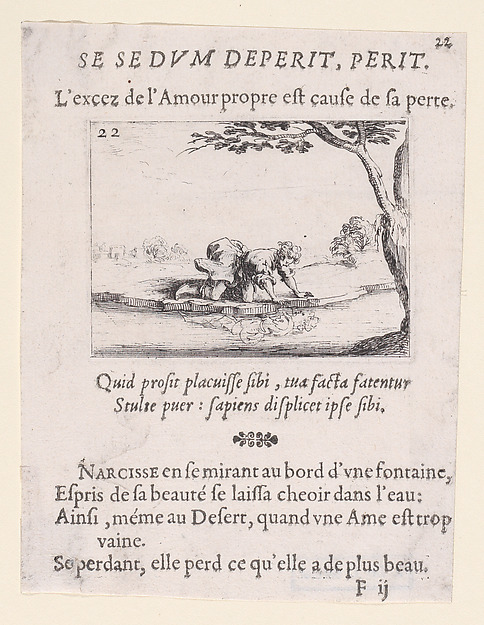 22
SE SE DVM DEPERIT, PERIT.
L'excez de l'Amour propre eſt cauſe de ſa perte.
22
Quid profit placuiſſe ſibi, tua facta fatentur
Stulte puer : ſapiens diſplicet ipſe ſibi.
NARCISSE en ſe mirant au bord d'vne fontaine,
Eſpris de ſa beauté ſe laiſſa cheoir dans l'eau:
Ainſi, méme au Deſert, quand vne Ame eſt trop
vaine.
Se perdant, elle perd ce qu'elle a de plus beau.
F ij